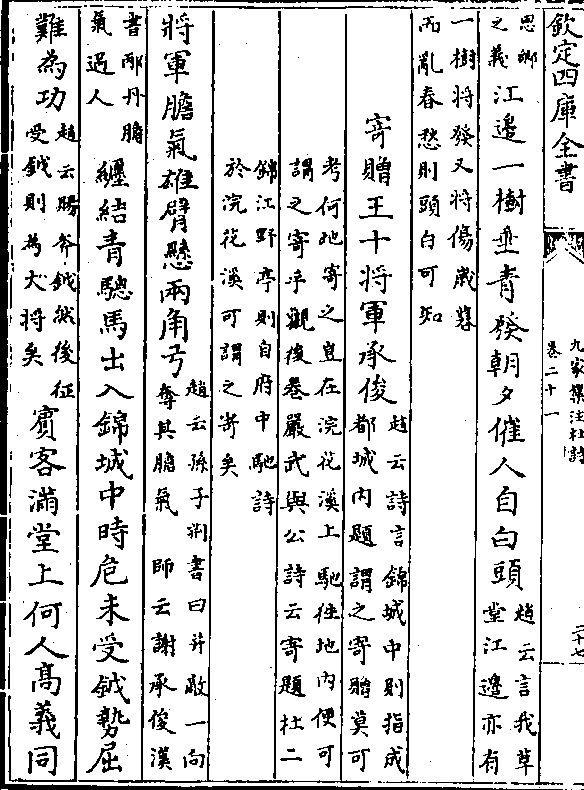 欽定四庫全書
九家集注杜詩
卷二十一
二十七
思鄉
之義
江邊一樹垂青發朝夕催人自白頭
趙云言我草
堂江邊亦有
一樹將發又將傷歲暮
而亂春愁則頭白可知
寄贈王十將軍承俊
趙云詩言錦城中則指成
都城内題謂之寄贈莫可
考何地寄之豈在浣花溪上馳往地内便可
謂之寄乎觀後卷嚴武與公詩云寄題杜二
錦江野亭則自府中馳詩
於浣花溪可謂之寄矣
將軍膽氣雄臂懸兩角弓
趙云孫子荆書曰并敵一向
奪其膽氣 師云謝承俊漢
書邴丹膽
氣過人
纏結青驄馬出入錦城中時危未受鉞勢屈
難為功
趙云賜斧鉞然後征
受鉞則為大將矣
賓客滿堂上何人高義同